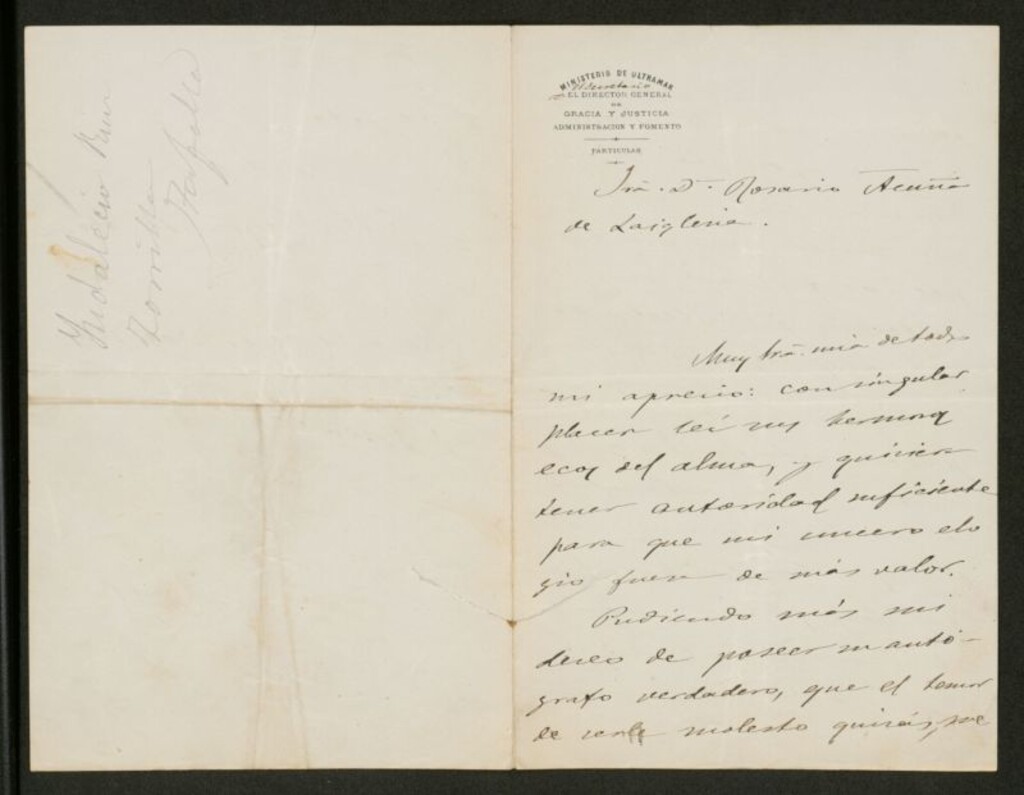 Indalecio Ruiz
Zorrilla
MINISTERIO DE ULTRAMAR
El Secretario
EL DIRECTOR GENERAL
DE
GRACIA Y JUSTICIA
ADMINISTRACION Y FOMENTO
PARTICULAR
Sra. Dª Rosario Acuña
de Laiglesia.
Muy Sra. mia de todo
mi aprecio: con singular
placer leí sus hermosos
ecos del alma, y quisiera
tener autoridad suficiente
para que mi sincero elo
gio fuera de más valor.
Pudiendo más mi
deseo de poseer su autó-
grafo verdadero, que el temor
de serle molesto quizás, me